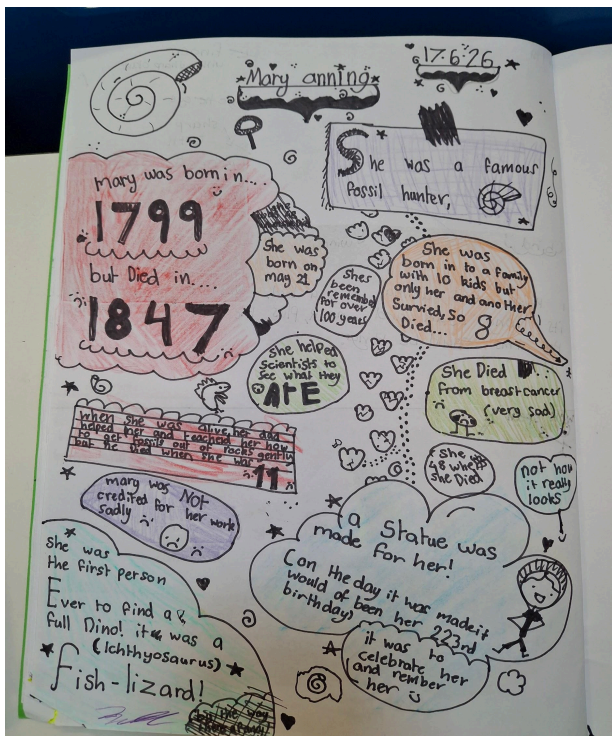 Mary anning
17.6.26
She was a famous
fossil hunter,
mary was born in....
1799
but Died in....
1847
She was
born on
may 21
Shes
been
remember
for over
100 years
She was
born in to a family
with 10 kids but
only her and another
Survied, so 8
Died...
She helped
Scientists to
see what they
ATE
She Died
from breast cancer
(very sad)
when she was alive, her dad
helped her and teached her how
to get fossils out of rocks gently
but he died when she was
11
She
48 when
She Died
not how
it really
looks
mary was NOT
credited for her work
sadly
a Statue was
made for her!
(on the day it was made it
would of been her 223rd
birthday)
it was to
celebrate her
and rember
her
She was
the first person
Ever to find a
full Dino! it was a
(Ichthyosaurus)
fish-lizard!
by the way